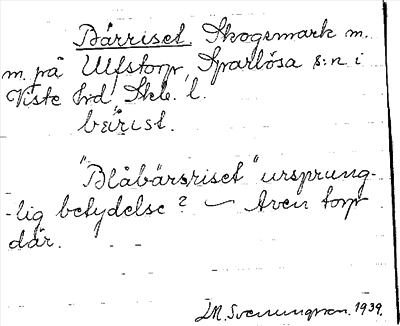 Bärriset. Skogsmark m.
m. på Ulfstorp, Sparlösa s:n i
Viste hd, Skb. l.
bä̀rist.
"Blåbärsriset" ursprung-
-lig betydelse? — Även torp
där.
M. Svenungsson. 1939.